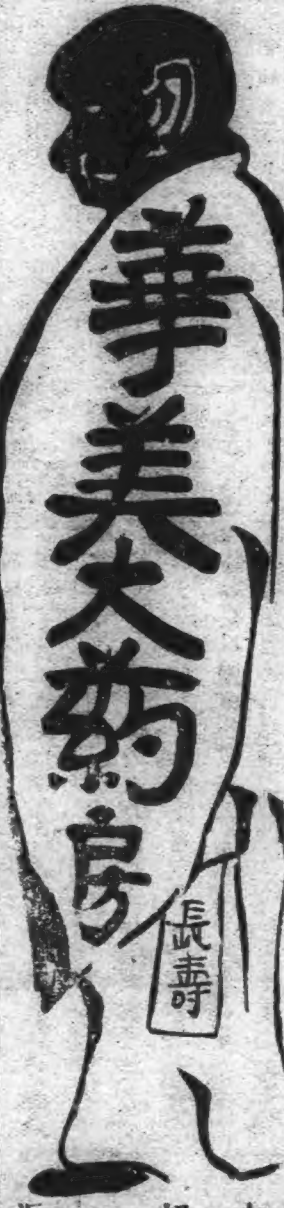 華美大药房
長壽